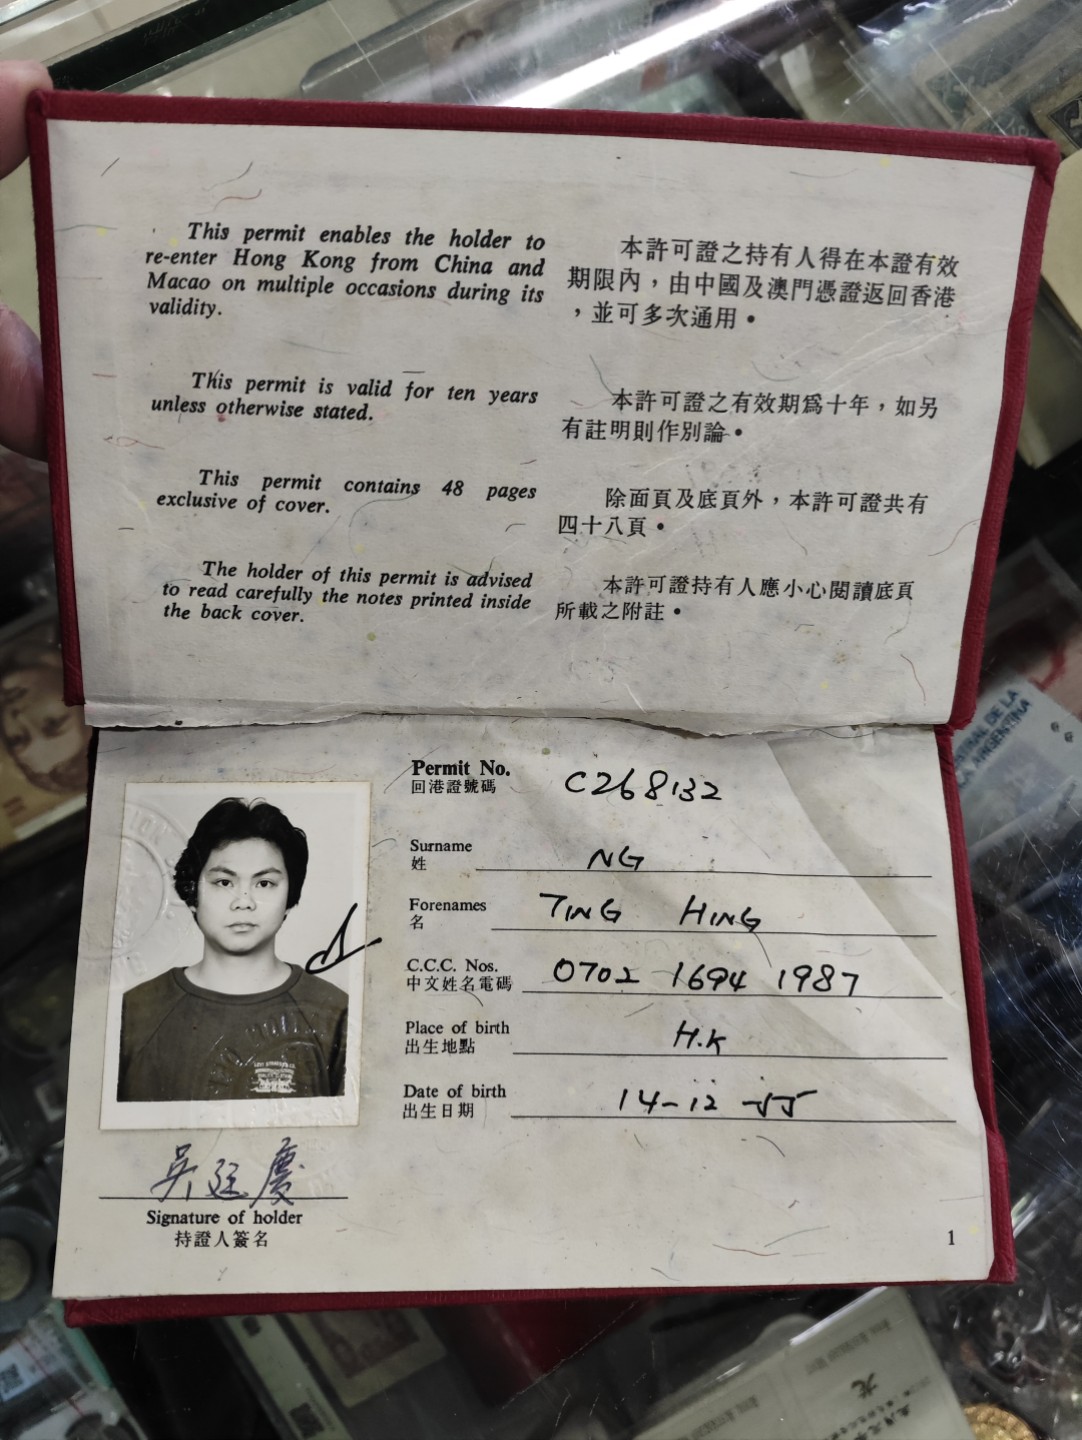 This permit enables the holder to
re-enter Hong Kong from China and
Macao on multiple occasions during its
validity.
本許可證之持有人得在本證有效
期限內，由中國及澳門憑證返回香港
，並可多次通用。
This permit is valid for ten years
unless otherwise stated.
本許可證之有效期爲十年，如另
有註明則作別論。
This permit contains 48 pages
exclusive of cover.
除面頁及底頁外，本許可證共有
四十八頁。
The holder of this permit is advised
to read carefully the notes printed inside
the back cover.
本許可證持有人應小心閱讀底頁
所載之附註。
Permit No. C268132
回港證號碼
Surname NG
姓
Forenames TING HING
名
C.C.C. Nos. 0702 1694 1987
中文姓名電碼
Place of birth H.K
出生地點
Date of birth 14-12-55
出生日期
吴廷慶
Signature of holder
持證人簽名
1
CENTRAL DE LA
ARGENTINA